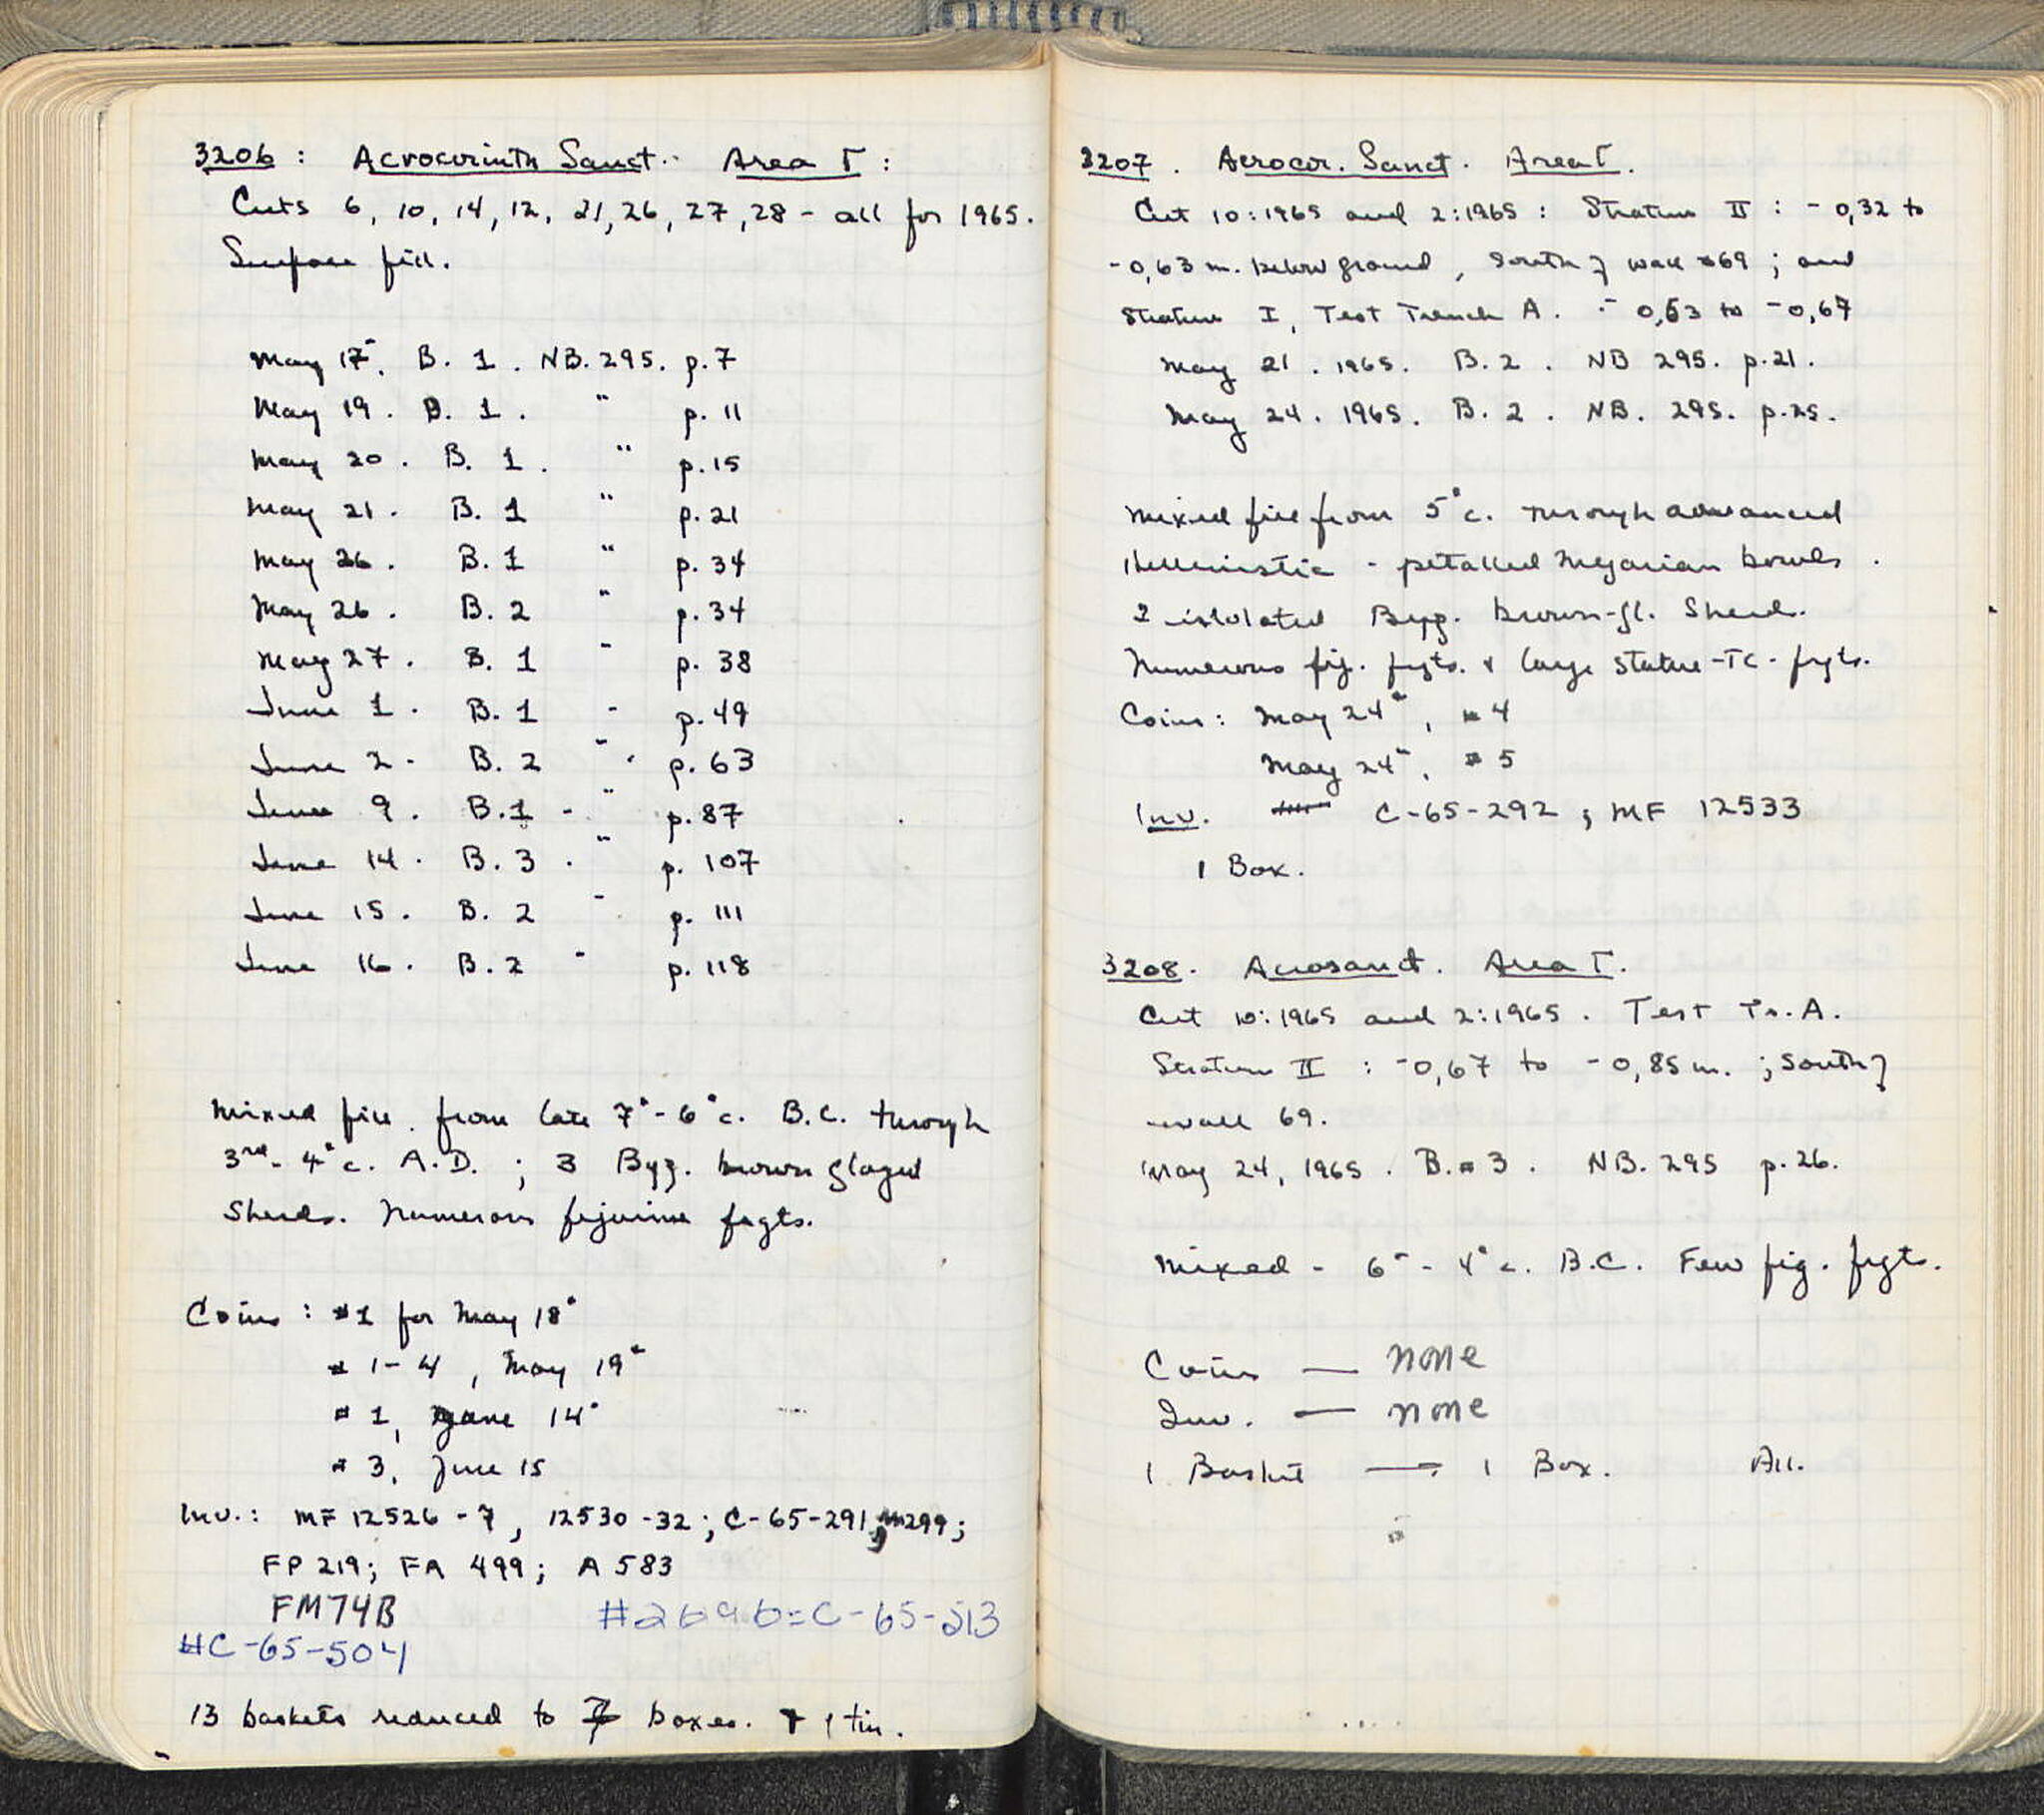 3206 : Acrocorinth Sanct. Area Γ :
Cuts 6, 10, 14, 12, 21, 26, 27, 28 - all for 1965.
Surface fill.
May 17". B. 1. NB. 295. p. 7
May 19. B. 1. " p. 11
May 20. B. 1. " p. 15
May 21. B. 1 " p. 21
May 26. B. 1 " p. 34
May 26. B. 2 " p. 34
May 27. B. 1 " p. 38
June 1. B. 1 " p. 49
June 2. B. 2 " p. 63
June 9. B. 1 - " p. 87
June 14. B. 3. " p. 107
June 15. B. 2 " p. 111
June 16. B. 2 " p. 118
Mixed fill from late 7"-6" c. B.C. through
3rd-4" c. A.D. ; 3 Byz. brown glazed
Sherds. Numerous figurine fragts.
Coins : #1 for May 18"
# 1-4, May 19"
# 1, June 14"
# 3, June 15
Inv.: MF 12526-7, 12530-32; C-65-291; 299;
FP 219; FA 499; A 583
FM74B #2696=C-65-513
#C-65-504
13 baskets reduced to 7 boxes. + 1 tin.
3207. Acrocor. Sanct. Area Γ.
Cut 10:1965 and 2:1965 : Stratum II : -0,32 to
-0,63 m. below ground, South of wall #69 ; and
Stratum I, Test Trench A. - 0,63 to -0,67
May 21. 1965. B. 2. NB 295. p. 21.
May 24. 1965. B. 2. NB. 295. p. 25.
Mixed fill from 5" c. through advanced
Hellenistic - petalled Megarian bowls.
2 isolated Byz. brown-gl. Sherd.
Numerous fig. fragts. & large statue-TC- fragts.
Coins : May 24", #4
May 24", #5
Inv. C-65-292 ; MF 12533
1 Box.
3208. Acrosanct. Area Γ.
Cut 10:1965 and 2:1965. Test Tr. A.
Stratum II : -0,67 to -0,85 m. ; South of
wall 69.
May 24, 1965. B. #3. NB. 295 p. 26.
Mixed - 6"-4" c. B.C. Few fig. fragt.
Coins — none
Inv. — none
1 Basket → 1 Box. All.